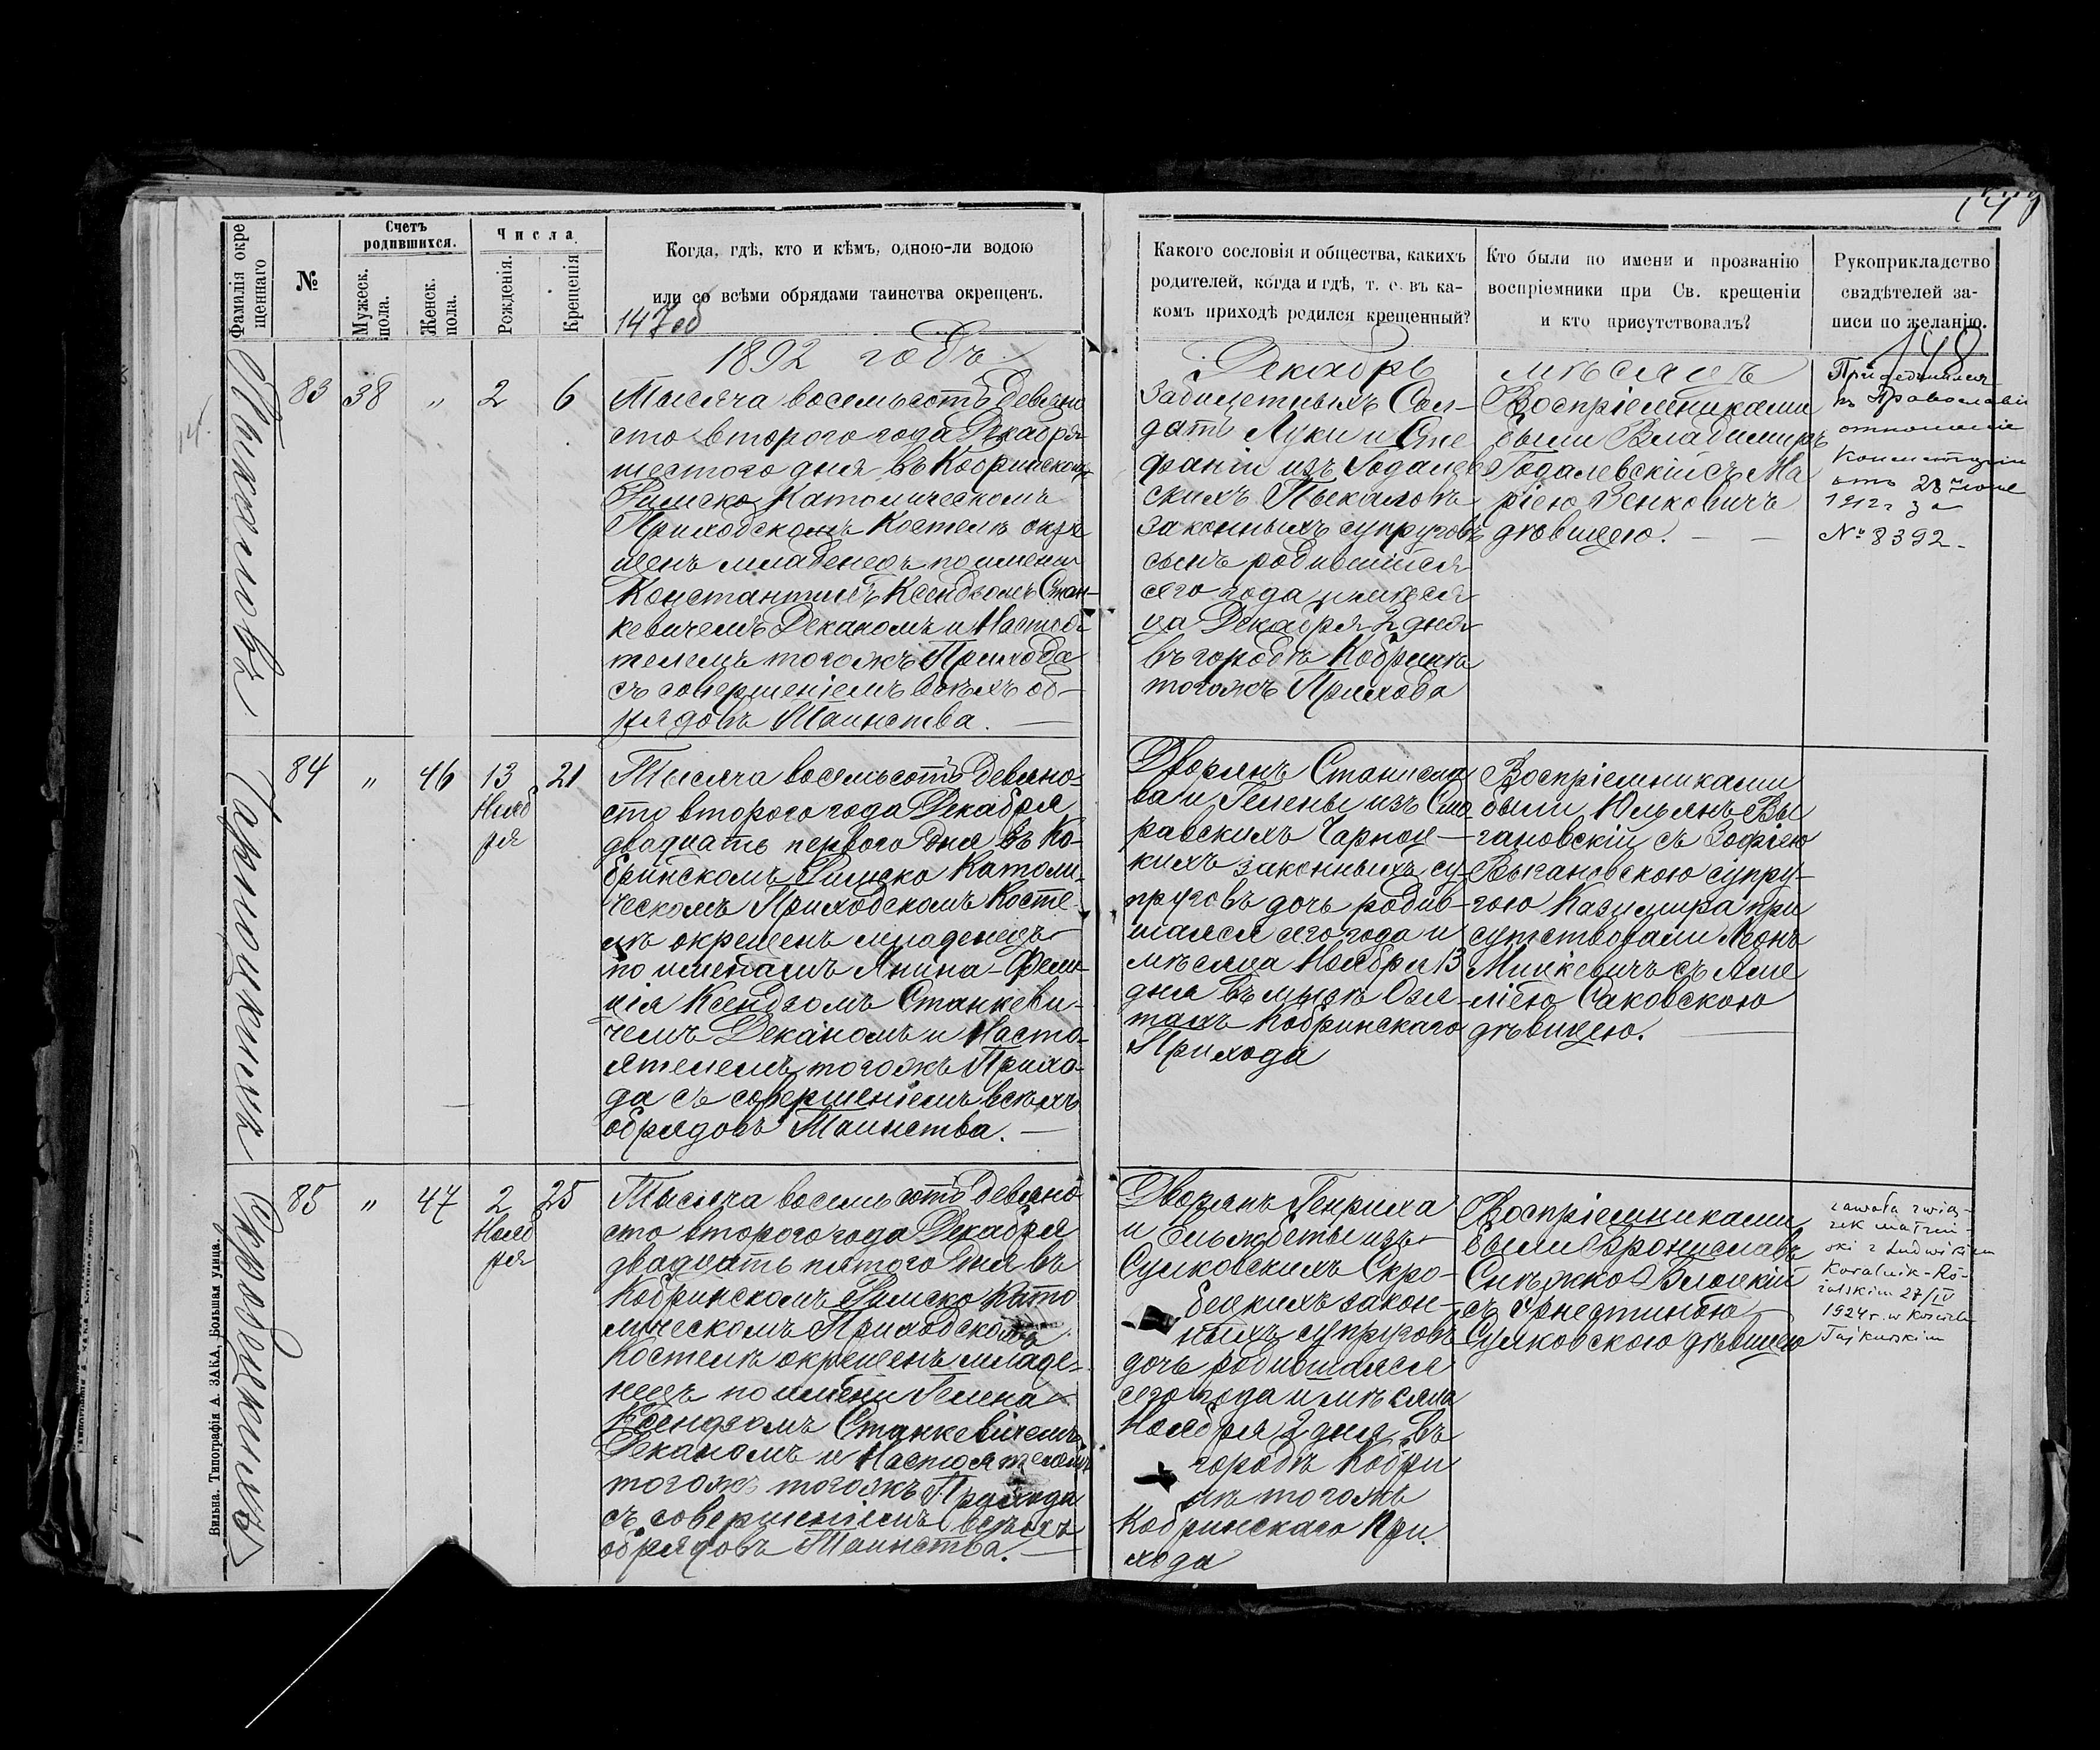 Фамилія окре
щеннаго
№
Счетъ
родившихся.
Мужеск.
пола.
Женск.
пола.
Числа
Рожденія.
Крещенія
Когда, гдѣ, кто и кѣмъ, одною-ли водою
или со всѣми обрядами таинства окрещенъ.
147об
Какого сословія и общества, какихъ
родителей, когда и гдѣ, т. е. въ ка-
комъ приходѣ родился крещенный?
Кто были по имени и прозванію
воспріемники при Св. крещеніи
и кто присутствовалъ?
Рукоприкладство
свидѣтелей за-
писи по желанію.
148
1892 годъ
Декабрь мѣсяцъ
83 38 „ 2 6
Тысяча восемьсотъ девяно
сто второго года Декабря
шестого дня въ Кобринскомъ
Римско Католическомъ
Приходскомъ Костелѣ окре
щенъ младенецъ по имени
Константинъ Ксендзомъ Стан-
кевичемъ Деканомъ и Настоя
телемъ тогожъ Прихода
съ совершеніемъ всѣхъ об-
рядовъ Таинства. —
Забилетныхъ Сол-
датъ Луки и Сте
фаніи изъ Годалев
скихъ
законныхъ супруговъ
сынъ родившійся
сего года и мѣся
ца Декабря 2 дня
въ городѣ Кобринѣ
тогожъ Прихода
Воспріемниками
были Владимиръ
Годалевскій съ Ма
ріею Зенковичъ
дѣвицею. —
къ Православію
отношеніе
Консисторіи
отъ 28 іюня
1912 г за
№ 8392.
Чарноцкихъ
84 „ 46 13 21
Нояб
ря
Тысяча восемьсотъ девяно-
сто второго года Декабря
двадцать перваго дня въ Ко-
бринскомъ Римско Католи-
ческомъ Приходскомъ Косте-
лѣ окрещенъ младенецъ
по именамъ Янина-Фели-
ція Ксендзомъ Станкеви-
чемъ Деканомъ и Насто-
ятелемъ тогожъ Прихо-
да съ совершеніемъ всѣхъ
обрядовъ Таинства. —
Дворянъ Станисла
ва и Гелены изъ
Чарноц-
кихъ законныхъ су-
пруговъ дочь родив-
шаяся сего года и
мѣсяца Ноября 13
дня въ
Кобринскаго
Прихода
Воспріемниками
были Юльянъ Вы
гановскій съ Зофіею
Выгановскою супру-
гою Казимира при
сутствовали Леонъ
Мицкевичъ съ Аме
ліею Саковскою
дѣвицею.
Скробецкихъ
85 „ 47 2 25
Нояб
ря
Тысяча восемьсотъ девяно
сто второго года Декабря
двадцать пятого дня въ
Кобринскомъ Римско Като
лическомъ Приходскомъ
Костелѣ окрещенъ младе-
нецъ по имени Гелена
Ксендзомъ Станкевичемъ
Деканомъ и Настоятелемъ
тогожъ тогожъ Прихода
съ совершеніемъ всѣхъ
обрядовъ Таинства. —
Дворянъ Генриха
и Ельжбеты изъ
Сулковскихъ Скро-
бецкихъ закон-
ныхъ супруговъ
дочь родившаяся
сего года и мѣсяца
Ноября 2 дня въ
городѣ Кобри
нѣ тогожъ
Кобринскаго При-
хода
Воспріемниками
были Брониславъ
съ Эрнестиною
Сулковскою дѣвицею
zawarła zwią-
zek małżeń-
ski z Ludwikiem
27/IV
1924 r. w kościele
Вильна. Типографія А. ЗАКА, Большая улица.